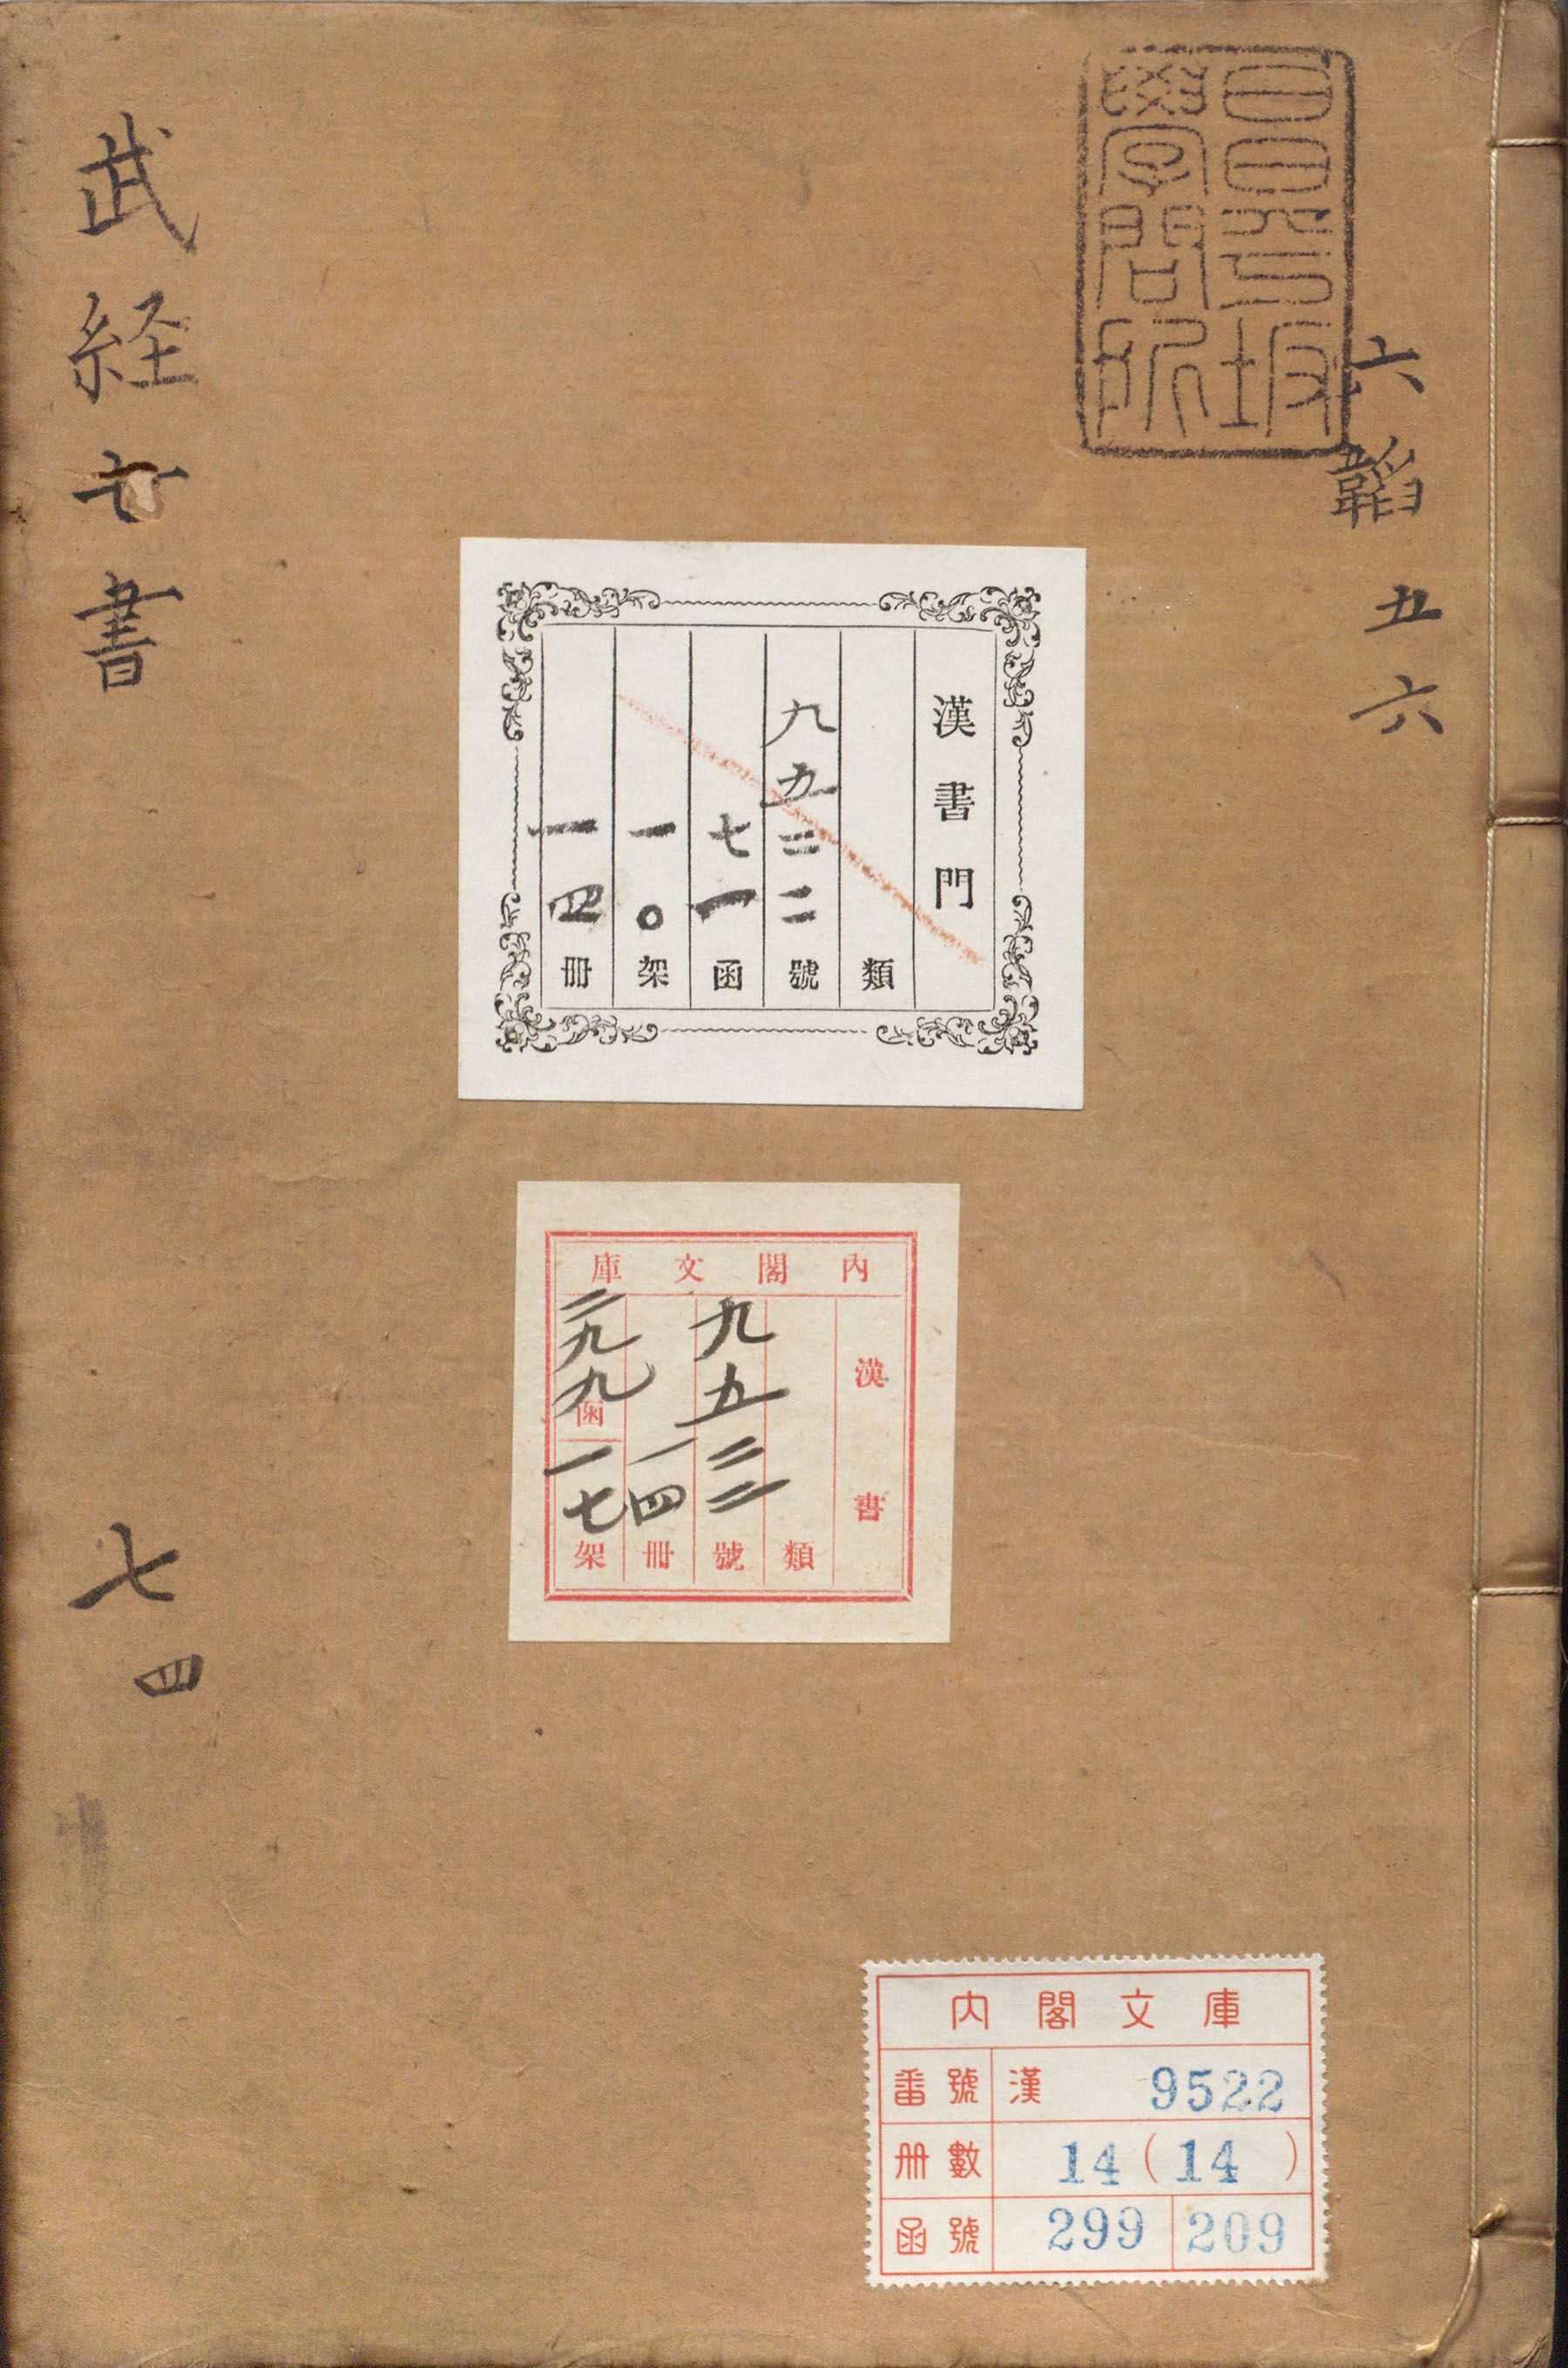 六韜 五六
昌平坂
學問所
武経七書 七四
漢書門
類
九五二二號
七一函
一〇架
一四冊
內閣文庫
漢書
類
九五二二號
一四冊
二九九函一七架
內閣文庫
番號 漢 9522
冊數 14(14 )
函號 299 209